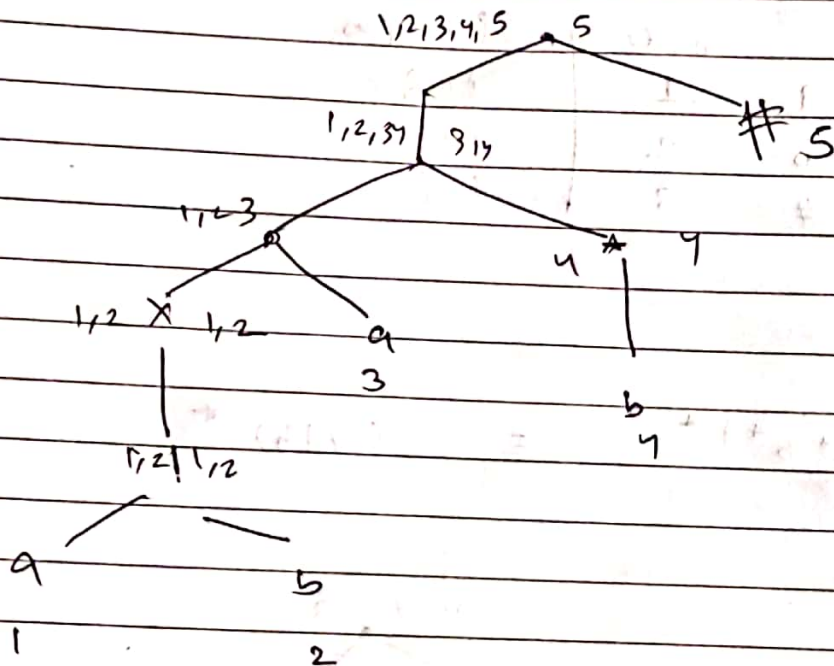 1,2,3,4,5 5
# 5
1,2,3 4 3,4
1,2 3
4 * 4
1,2 X 1,2
a
3
b
4
1,2 | 1,2
a b
1 2